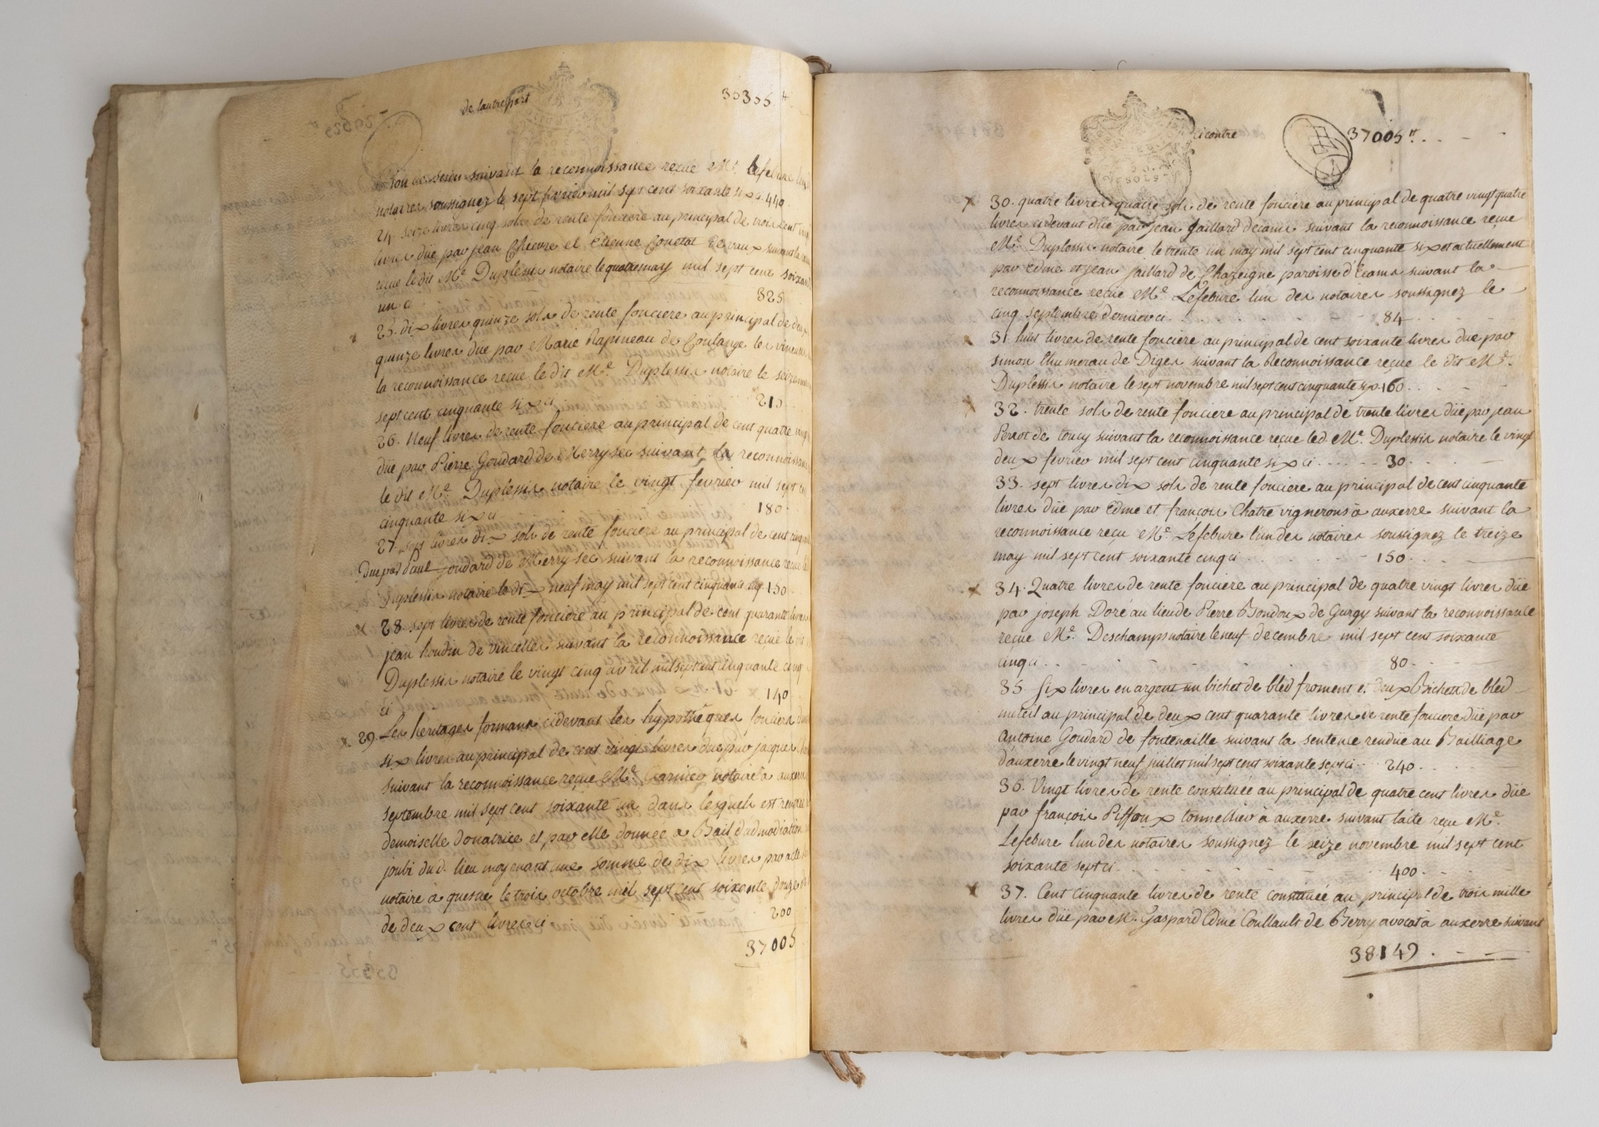 de lautre part 35355 tt
suivant la reconnoissance recue Me. Lefebure
notaires soussignez le sept mil sept cent soixante six 440
24. seize livres cinq sols de rente fonciere au principal de trois cent
livres düe par jean et Etienne suivant la
recue le dit Me. Duplessis notaire le quatre may mil sept cent soixante
un ci 325
25. dix livres quinze sols de rente fonciere au principal de deux
quinze livres düe par Marie Rapineau de Coulange les vineuses
la reconnoissance recue le dit Me. Duplessis notaire le seize
sept cent cinquante six ci 215
26. Neuf livres de rente fonciere au principal de cent quatre vingt
düe par Pierre Goudard de Merry sec suivant la reconnoissance
le dit Me. Duplessis notaire le vingt fevrier mil sept cent
cinquante six ci 180
27. sept livres dix sols de rente fonciere au principal de cent cinquante
Düe par Paul Goudard de Merry sec suivant la reconnoissance recue le
Duplessis notaire le neuf may mil sept cent cinquante 150
28. sept livres de rente fonciere au principal de cent quarante livres
jean houdin de vincelles suivant la reconnoissance recue le
Duplessis notaire le vingt cinq avril mil sept cent cinquante cinq
ci 140
x 29 Les heritages formans cidevant les hypotheques fonciers
six livres au principal de cent vingt livres düe par jaques
suivant la reconnoissance recue Me. notaire a auxerre
septembre mil sept cent soixante un dans lesquels est rentrée
demoiselle donatrice et par elle donnée a Bail dadmodiation
joubi dud. lieu moyenant une somme de dix livres par acte
notaire a quesne le trois octobre mil sept cent soixante douze
de deux cent livres ci 200
37005
cicontre 37005 tt
x 30. quatre livres quatre sols de rente fonciere au principal de quatre vingt quatre
livres cidevant düe par jean Gaillard decamis suivant la reconnoissance recue
Me. Duplessis notaire le trente un may mil sept cent cinquante six et actuellement
par Edme et jean Gaillard de Chazeigne paroisse d'Ecamis suivant la
reconnoissance recue Me. Lefebure lun des notaires soussignez le
cinq septembre dernier ci 84
31. huit livres de rente fonciere au principal de cent soixante livres düe par
simon Chumorau de Diges suivant la Reconnoissance recue le dit Me.
Duplessis notaire le sept novembre mil sept cent cinquante six 160
32. trente sols de rente fonciere au principal de trente livres düe par jean
Perrot de toucy suivant la reconnoissance recue led Me. Duplessis notaire le vingt
deux fevrier mil sept cent cinquante six ci 30
33. sept livres dix sols de rente fonciere au principal de cent cinquante
livres düe par Edme et françois Chatre vignerons a auxerre suivant la
reconnoissance recu Me. Lefebure lun des notaires soussignez le treize
may mil sept cent soixante cinq ci 150
x 34. Quatre livres de rente fonciere au principal de quatre vingt livres düe
par joseph Doré au lieu de Pierre Bondoux de Gurgy suivant la reconnoissance
recue Me. Deschamps notaire le neuf decembre mil sept cent soixante
cinq ci 80
35. Six livres en argent un bichet de bled froment et deux Bichets de bled
meteil au principal de deux cent quarante livres de rente fonciere düe par
Antoine Goudard de fontenaille suivant la sentence rendue au Bailliage
d'auxerre le vingt neuf juillet mil sept cent soixante sept ci 240
36. Vingt livres de rente constituée au principal de quatre cent livres düe
par françois Piffoux tonnellier à auxerre suivant lacte recu Me.
Lefebure lun des notaires soussignez le seize novembre mil sept cent
soixante sept ci 400
x 37. Cent cinquante livres de rente constituée au principal de trois mille
livres düe par Me. Gaspard Edme Coullault de Berry avocat a auxerre suivant
38149